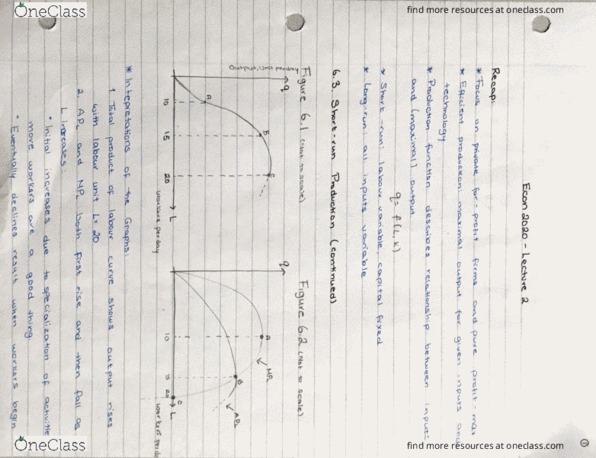 OneClass
find more resources at oneclass.com
Econ 2020 - Lecture 2
Recap:
* Focus on private for-profit firms and pure profit-max
* Efficient production: maximal output for given inputs and
technology
* Production function describes relationship between inputs
and (maximal) output
q = f(L, K)
* Short-run: labour variable, capital fixed
* Long-run: all inputs variable
6.3. Short-run Production (continued)
Figure 6.1 (not to scale)
Output, Unit per day
q
A
B
C
10
15
20
L
workers per day
Figure 6.2 (not to scale)
q
A
B
C
MPL
APL
10
15
20
L
workers per da
* Intepretations of the Graphs:
1. Total product of labour curve shows output rises
with labour unit L = 20
2. APL and MPL both first rise and then fall as
L increases.
* Initial increases due to specialization of activitie
more workers are a good thing
* Eventually declines result when workers begin
OneClass
find more resources at oneclass.com